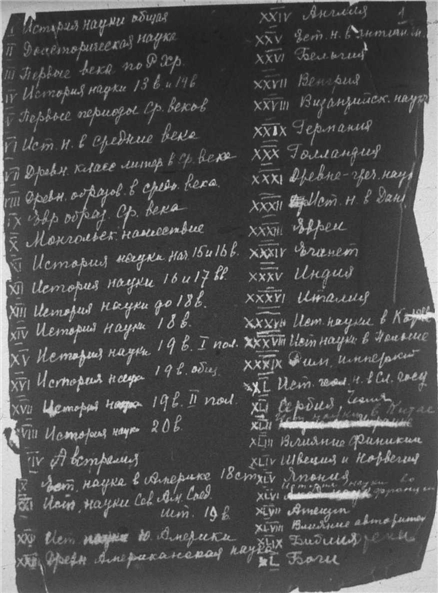 I История науки общая
II Доисторическая наука
III Первые века по Р.Хр.
IV История науки 13 в и 14 в
V Первые периоды Ср. веков
VI Ист. н. в средние века
VII Древн. класс литер в ср. века
VIII Древн. образов. в средн. века
IX Евр образ. Ср. века
X Монгольск. нашествие
XI История науки нач 15 и 16 в.
XII История науки 16 и 17 вв
XIII История науки до 18 в.
XIV История науки 18 в.
XV История науки 19 в. I пол.
XVI История наук 19 в. общ
XVII История наук 19 в. II пол.
XVIII История наук 20 в.
XIV Австралия
XX Ест. наука в Америке 18 ст
XXI Ист. науки Сев. Ам. Соед.
Шт. 19 в
XXII Ист наук Ю. Америки
Древн Американская наука
XXIV Англия
XXV Ест. н. в
XXVI Бельгия
XXVII Венгрия
XXVIII Византийск. наук
XXIX Германия
XXX Голландия
XXXI Древне-греч. наук
XXXII Ист. н. в Дан
XXXIII Евреи
XXXIV Египет
XXXV Индия
XXXVI Италия
XXXVII Ист науки в
XXXVIII Ист науки в Польше
XXXIX Рим. империя
XL Ист. н. в Сл. госу
XLI Сербия
в Китае
XLIII Влияние Финикии
XLIV Швеция и Норвегия
XLV Япония
XLVI
XLVII Ацтеки
XLVIII Влияние
XLIX Библия
L Боги